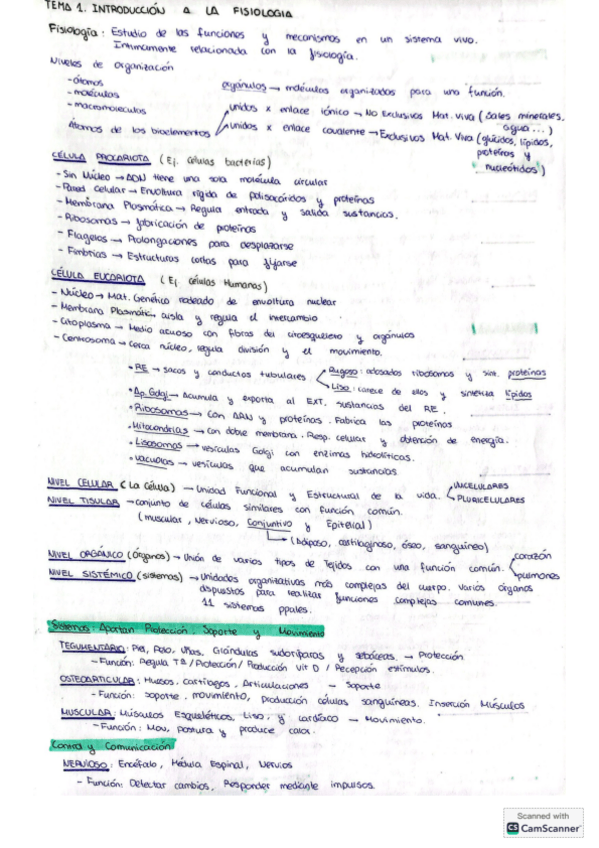 TEMA 1. INTRODUCCIÓN A LA FISIOLOGIA
Fisiología: Estudio de las funciones y mecanismos en un sistema vivo.
Intimamente relacionada con la fisiología.
Niveles de organización
- átomos
- moléculas
- macromoleculas
orgánulos → moléculas organizadas para una función.
Átomos de los bioelementos
unidos x enlace iónico → No Exclusivos Mat. Viva (Sales minerales, agua...)
unidos x enlace covalente → Exclusivos Mat. Viva (glúcidos, lípidos, proteínas y nucleótidos)
CÉLULA PROCARIOTA (Ej. células bacterias)
- Sin Núcleo → ADN tiene una sola molécula circular
- Pared Celular → Envoltura rígida de polisacáridos y proteínas
- Membrana Plasmática → Regula entrada y salida sustancias.
- Ribosomas → fabricación de proteínas
- Flagelos → Prolongaciones para desplazarse
- Fimbrias → Estructuras cortas para fijarse
CÉLULA EUCARIOTA (Ej. células Humanas)
- Núcleo → Mat. Genético rodeado de envoltura nuclear
- Membrana Plasmática, aisla y regula el intercambio
- Citoplasma → Medio acuoso con fibras del citoesqueleto y orgánulos
- Centrosoma → cerca núcleo, regula división y el movimiento.
• RE → sacos y conductos tubulares
Rugoso: adosados ribosomas y sint. proteínas
Liso: carece de ellos y sintetiza lípidos
• Ap. Golgi → Acumula y exporta al EXT. sustancias del RE.
• Ribosomas → Con ARN y proteínas. Fabrica las proteínas
• Mitocondrias → con doble membrana. Resp. celular y obtención de energía.
• Lisosomas → vesículas Golgi con enzimas hidrolíticas.
• vacuolas → vesículas que acumulan sustancias
NIVEL CELULAR (La célula) → Unidad Funcional y Estructural de la vida.
- UNICELULARES
- PLURICELULARES
NIVEL TISULAR → conjunto de células similares con función común.
(muscular, Nervioso, Conjuntivo y Epitelial)
→ (Adiposo, cartilaginoso, óseo, sanguíneo)
NIVEL ORGÁNICO (Órganos) → Unión de varios tipos de Tejidos con una función común.
corazón
pulmones
NIVEL SISTÉMICO (sistemas) → Unidades organizativas más complejas del cuerpo. Varios órganos
dispuestos para realizar funciones complejas comunes.
11 sistemas ppales.
Sistemas: Aportan Protección, Soporte y Movimiento
TEGUMENTARIO: Piel, Pelo, Uñas, Glándulas sudoríparas y sebáceas. → Protección.
- Función: Regula Tª / Protección / Producción Vit D / Recepción estímulos.
OSTEOARTICULAR: Huesos, Cartílagos, Articulaciones → Soporte
- Función: Soporte, movimiento, producción células sanguíneas. Inserción Músculos
MUSCULAR: Músculos Esqueléticos, Liso, y cardíaco → Movimiento.
- Función: Mov, postura y produce calor.
Control y Comunicación
NERVIOSO: Encéfalo, Médula Espinal, Nervios
- Función: Detectar cambios, Responder mediante impulsos.
Scanned with
CS CamScanner